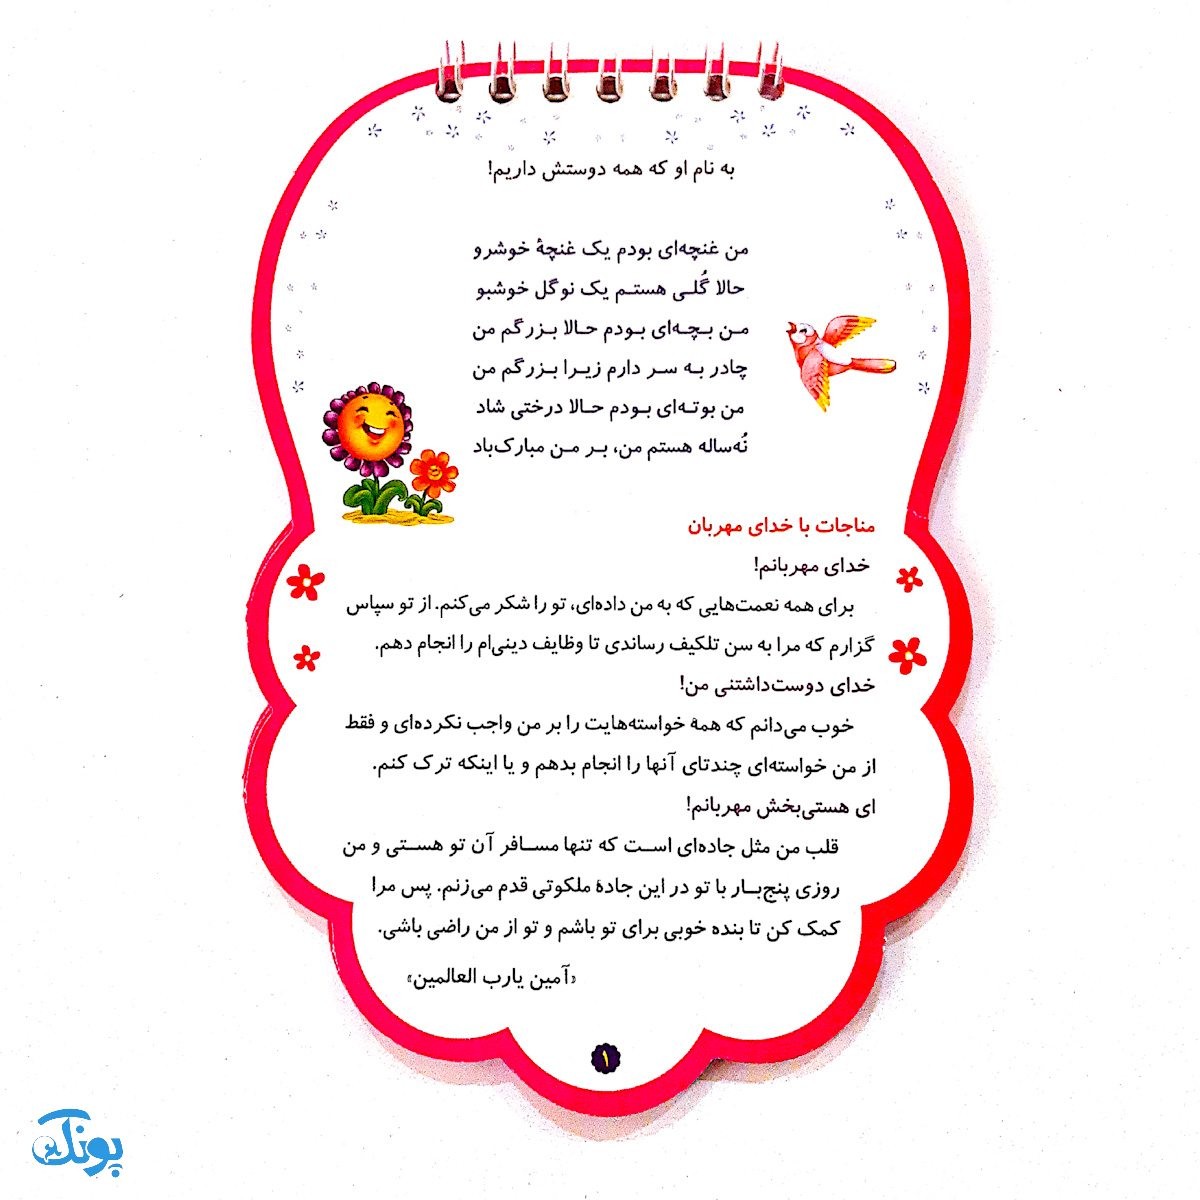 به نام او که همه دوستش داریم!
من غنچه‌ای بودم یک غنچهٔ خوشرو
حالا گُلـی هستـم یک نوگل خوشبو
مـن بـچـه‌ای بـودم حـالا بـزرگم من
چادر بـه سـر دارم زیـرا بـزرگم من
من بوتـه‌ای بـودم حالا درختی شاد
نُه‌ساله هستم من، بـر مـن مبارک‌باد
مناجات با خدای مهربان
خدای مهربانم!
برای همه نعمت‌هایی که به من داده‌ای، تو را شکر می‌کنم. از تو سپاس
گزارم که مرا به سن تلکیف رساندی تا وظایف دینی‌ام را انجام دهم.
خدای دوست‌داشتنی من!
خوب می‌دانم که همهٔ خواسته‌هایت را بر من واجب نکرده‌ای و فقط
از من خواسته‌ای چندتای آنها را انجام بدهم و یا اینکه ترک کنم.
ای هستی‌بخش مهربانم!
قلب من مثل جاده‌ای اسـت که تنها مسـافر آن تو هسـتی و من
روزی پنج‌بـار با تو در این جادهٔ ملکوتی قدم می‌زنم. پس مرا
کمک کن تا بنده خوبی برای تو باشم و تو از من راضی باشی.
«آمین یارب العالمین»
۱
پونک